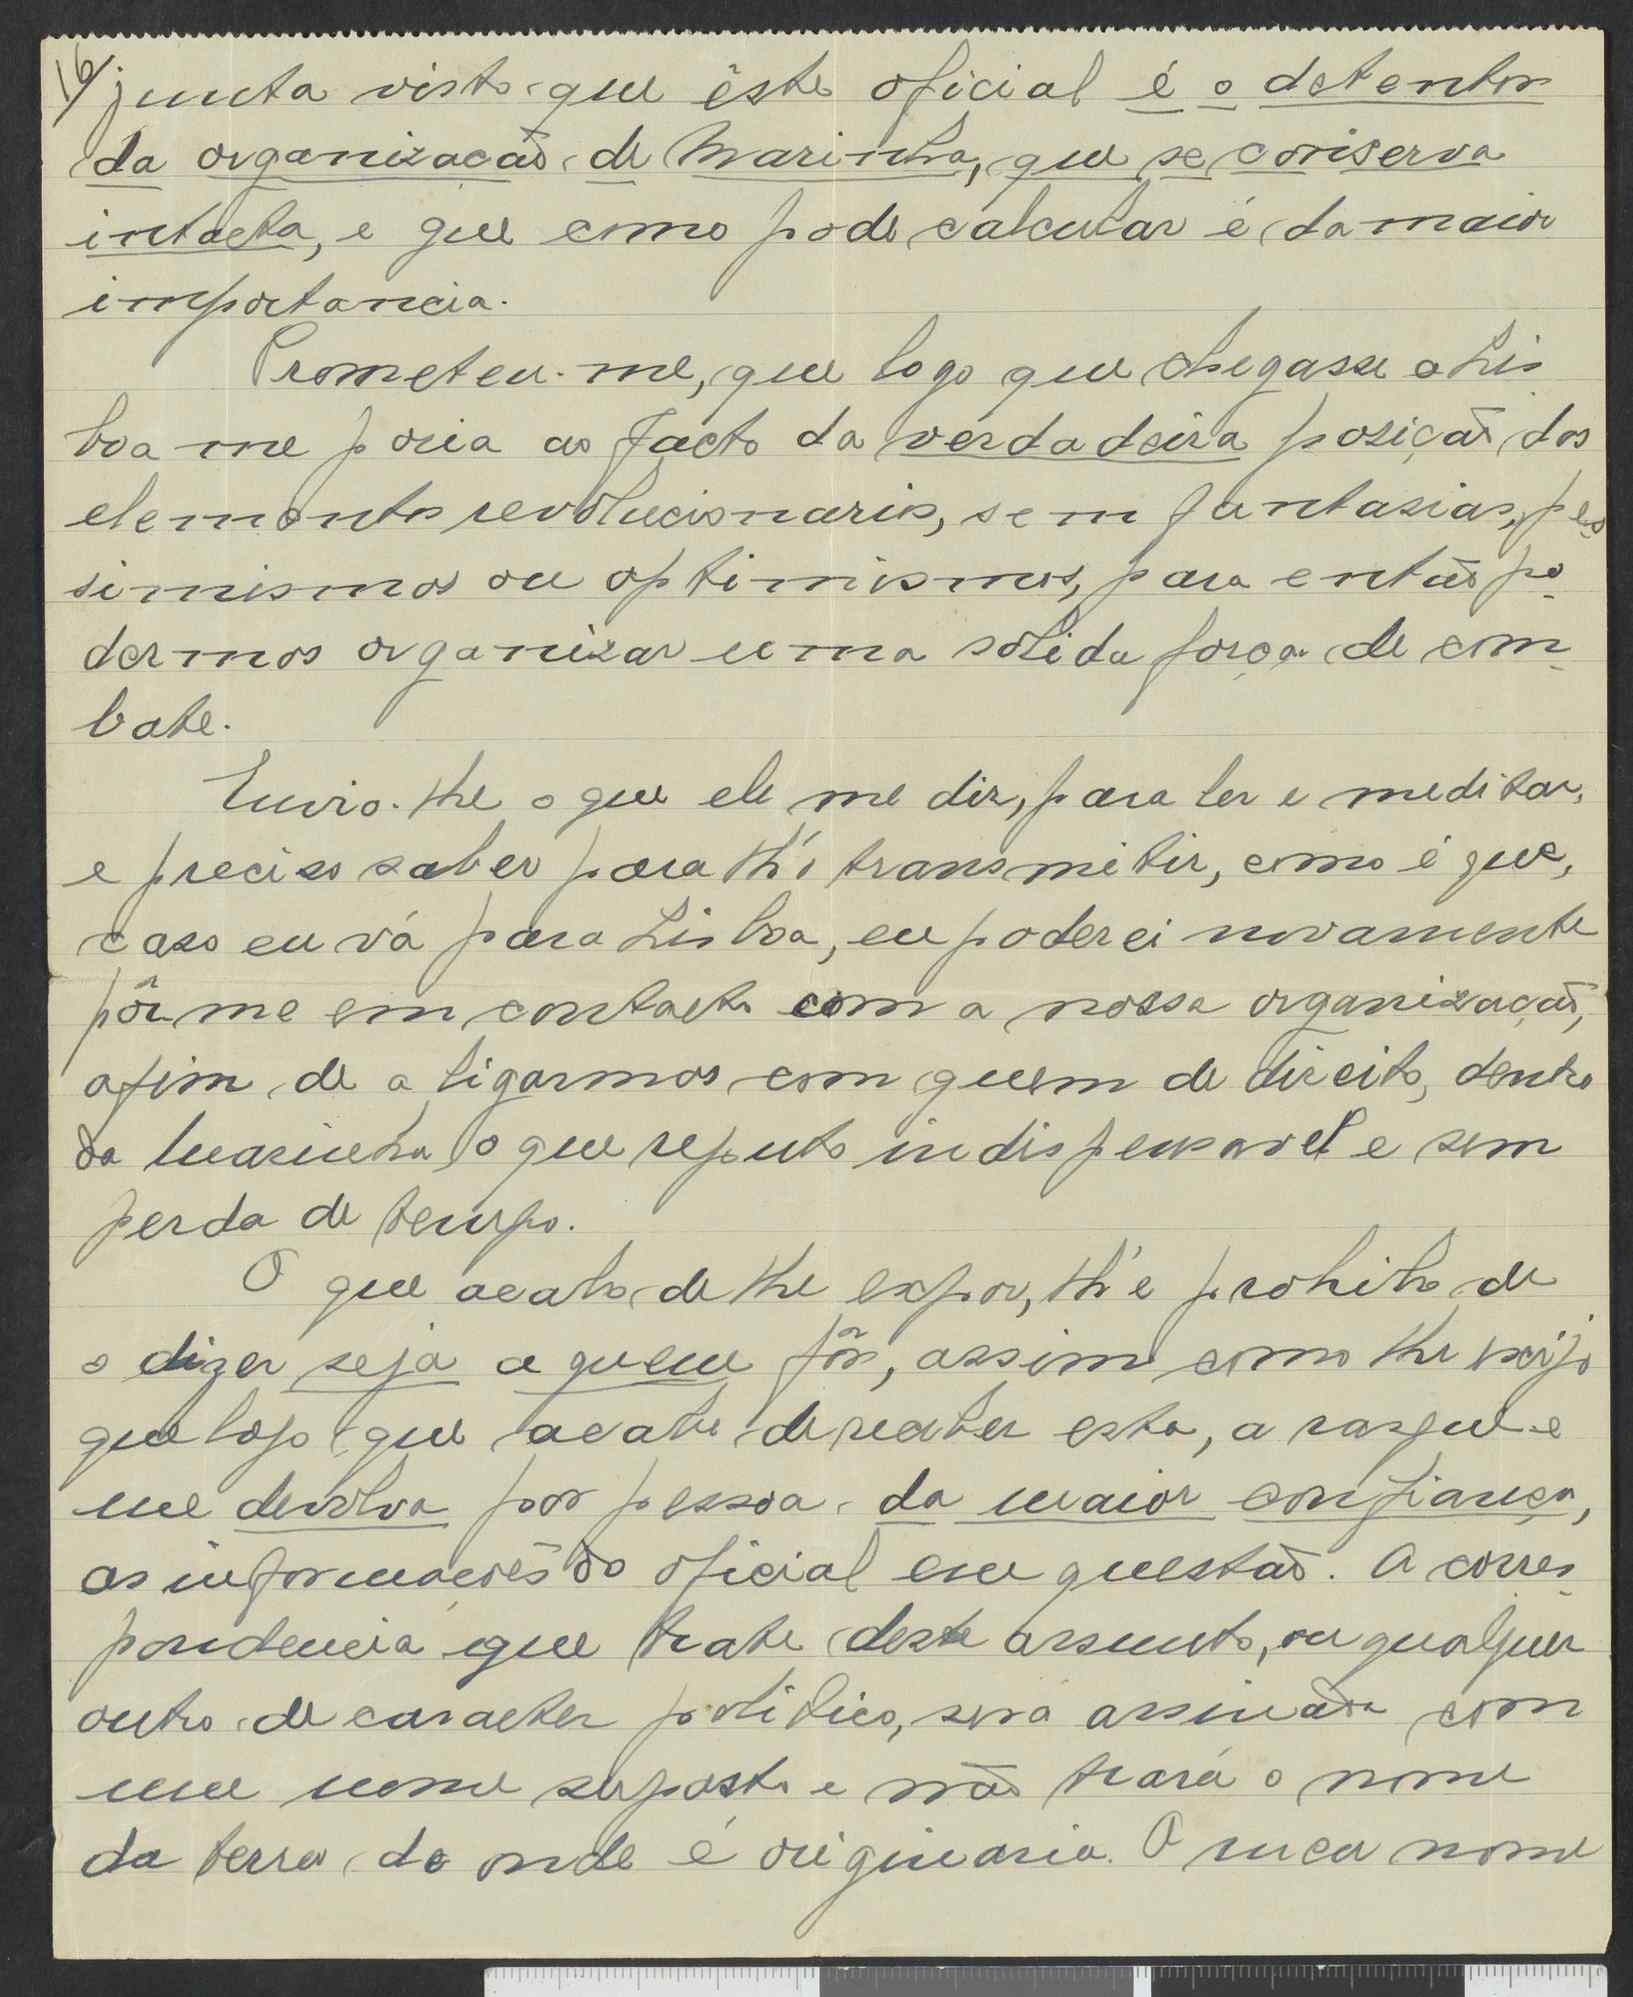 16/
junta visto que êste oficial é o detentor
da organização de Marinha, que se conserva
intacta, e que como pode calcular é da maior
importancia.
Prometeu-me, que logo que chegasse a Lis
boa me poria ao facto da verdadeira posição dos
elementos revolucionarios, sem fantasias, pes
simismos ou optimismos, para então po-
dermos organizar uma sólida força de com-
bate.
Envio-lhe o que ele me diz, para ler e meditar,
e preciso saber para lh'o transmitir, como é que,
caso eu vá para Lisboa, eu poderei novamente
pôr-me em contacto com a nossa organização,
afim de a ligarmos com quem de direito, dentro
da Marinha, o que reputo indispensavel e sem
perda de tempo.
O que acabo de lhe expor, lh'e prohibo de
o dizer seja a quem fôr, assim como lhe exijo
que logo que acabe de receber esta, a rasgue e
me devolva por pessoa da maior confiança,
as informações do oficial em questão. A corres-
pondencia que trate deste assunto, ou qualquer
outro de caracter politico, será assinada com
um nome suposto e não trará o nome
da terra de onde é originaria. O meu nome